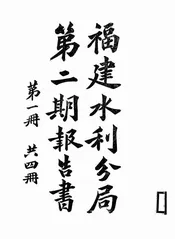 福建水利分局
第二期報告書
第一冊 共四冊